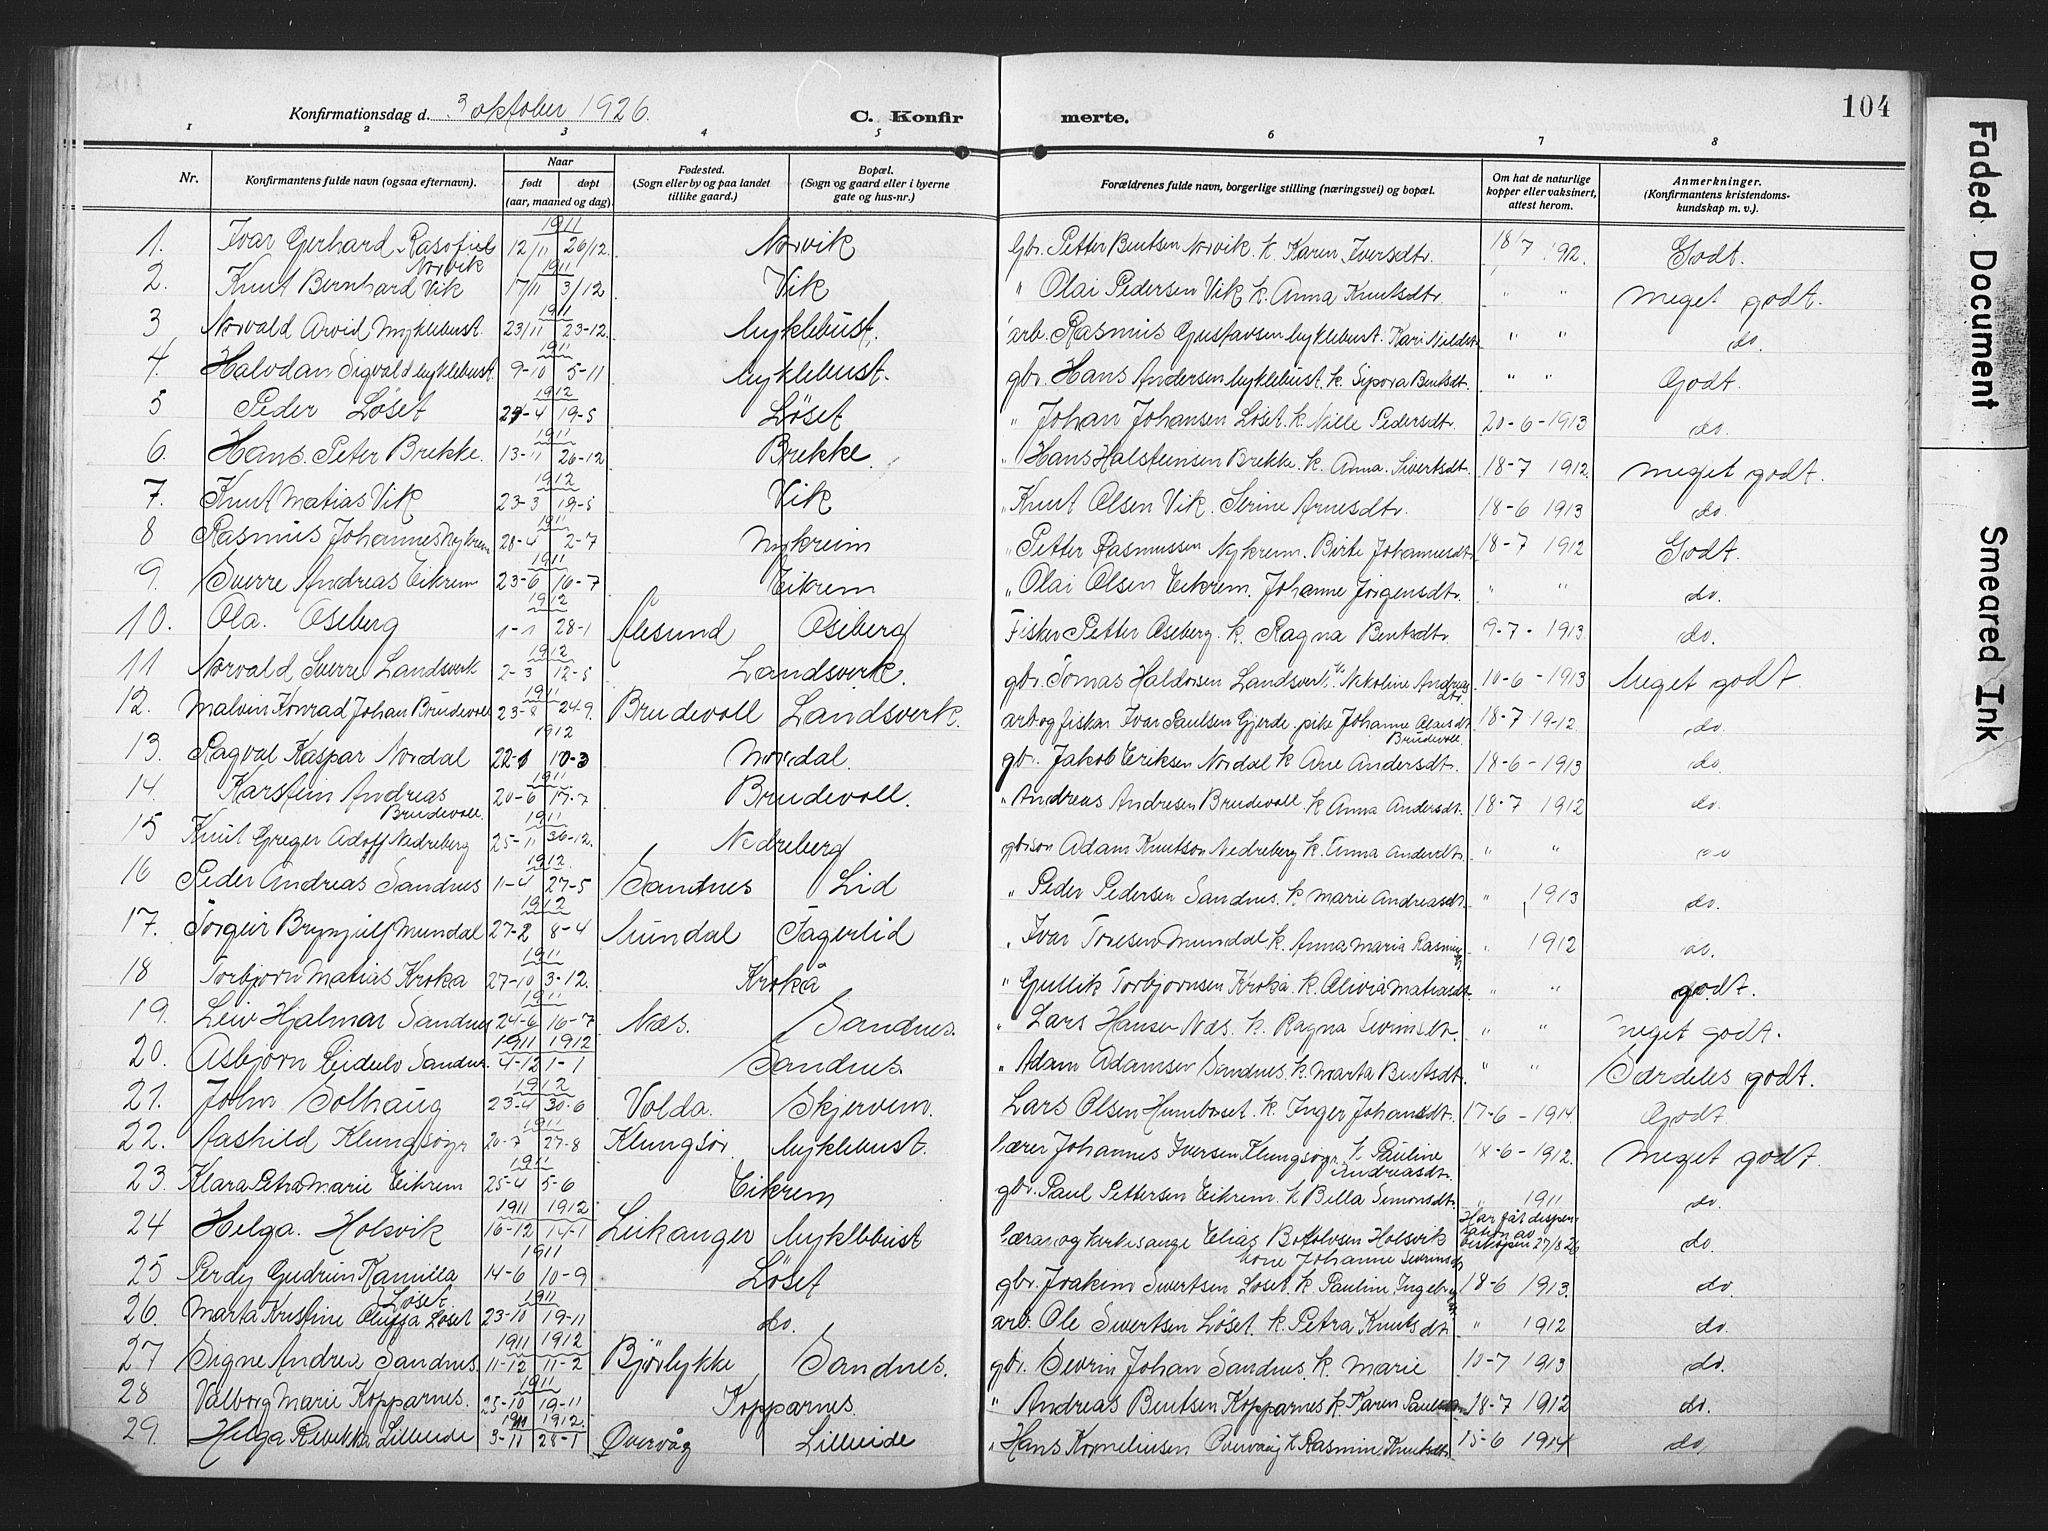 Konfirmationsdag d. 3 oktober 1926.
C. Konfirmerte.
104
1 2 3 4 5 6 7 8
Nr.
Konfirmantens fulde navn (ogsaa efternavn).
Naar
født døpt
(aar, maaned og dag).
Fødested.
(Sogn eller by og paa landet
tillike gaard.)
Bopæl.
(Sogn og gaard eller i byerne
gate og hus-nr.)
Forældrenes fulde navn, borgerlige stilling (næringsvei) og bopæl.
Om hat de naturlige
kopper eller vaksinert,
attest herom.
Anmerkninger.
(Konfirmantens kristendoms-
kundskap m. v.).
1911
1. Ivar Gerhard Norvik 12/11 26/12. Norvik Gbr. Petter Bentsen Norvik. k. Karen Iversdtr. 18/7 Godt.
1911
2. Knut Bernhard Vik 17/11 3/12 Vik " Olai Pedersen Vik k. Anna Knutsdtr. " " Meget godt.
1911
3 Norvald Arvid Myklebust. 23/11 23-12. Myklebust. arb. Rasmus Gustavsen Myklebust. Kari " " do.
1911
4. Halvdan Sigvald Myklebust. 9-10 5-11 Myklebust. gbr. Hans Andersen Myklebust. k. Sipora Bentsdt. " " Godt.
1912
5 Peder Løset 4 19-5 Løset " Johan Johansen Løset. k. Nille Pedersdtr. 20-6-1913 do.
1911
6. Hans Peter Brekke. 13-11 26-12 Brekke. " Hans Halsteinsen Brekke. k. Anna. Sivertsdt. 18-7 1912. Meget godt.
1912
7. Knut Matias Vik 23-3 19-5 Vik " Knut Olsen Vik. Serine Arnesdtr. 18-6 1913 do.
1911
8 Rasmus Johannes Nykreim 28-4 2-7 Nykreim " Petter Rasmussen Nykreim. Birte Johannesdt. 18-7 1912 Godt.
1911
9. Sverre Andreas Eikrem 23-6 16-7 Eikrem " Olai Olsen Eikrem. Johanne Jörgensdtr. " " do.
1912
10. Ola. Oseberg 1-1 28-1 Ålesund Oseberg Fisker Petter Oseberg. k. Ragna Bentsdtr. 9-7-1913. do.
1912
11 Norvald Sverre Landsverk 2-3 12-5 Landsverk. gbr. Tomas Haldorsen Landsverk. k. Nikoline Andreasdtr. 10-6-1913 Meget godt.
1911
12. Malvin Konrad Johan Brudevoll 23-8 24-9. Brudevoll Landsverk. arb og fisker Ivar Paulsen Gjerde. pike Johanne Olaisdt. Brudevoll. 18-7 19-12 do.
1912
13. Ragval Kaspar Nordal 22-1 10-3 Nordal. gbr. Jakob Eriksen Nordal k. Ane Andersdt. 18-6-1913 do
1911
14. Karstein Andreas Brudevoll. 20-6 17-7 Brudevoll. " Andreas Andresen Brudevoll. k Anna Andersdt. 18-7 1912 do
1911
15 Knut Greger Adolf Nedreberg 25-11 12. Nedreberg gbrson Adam Knutson Nedreberg k. Anna " "
1912.
16 Peder Andreas Sandnes 11-4 27-5 Sandnes Lid " Peder Pedersen Sandnes. k. Marie Andreasdt. " 1913 do.
1912
17. Torgeir Brynjulf Mundal 27-2 8-4 Mundal Fagerlid " Ivar Toresen Mundal k. Anna Maria " 1912 do.
1911
18 Torbjørn Matias Krokå 27-10 3-12. Krokå " Gullik Torbjørnsen Krokå. k. Olivia Matiasdt. " " godt.
1911
19. Leiv Hjalmar Sandnes 24-6 16-7 Næs. Sandnes. " Lars Hansen Næs. k. Ragna Sevrinsdt. " " Meget godt.
1911 1912
20. Asbjørn Eidulv Sandnes 4-12 1-1 Sandnes. " Adam Adamsen Sandnes. k. Marta Bentsdt. " " Særdeles godt.
1912
21. John Solhaug 23-4 30-6 Volda. Skjervem. Lars Olsen Humborset. k. Inger Johansdt. 17-6-1914. Godt.
1911
22. Aashild Klungsøyr 20-7 27-8 Klungsør. Myklebust. Lærer Johannes Iversen Klungsøyr. k. Pauline Andreasdt. 18-6-1912. Meget godt.
1911
23. Klara Petra Marie Eikrem 25-4 5-6 Eikrem gbr. Paul Pettersen Eikrem. k Bella Simonsdt. " 1911 do.
1911 1912
24 Helga. Holsvik 16-12 14-1 Leikanger Myklebust Lærer og kirkesanger Elias Botolvsen Holsvik kone Johanne Sevrinsdt. Har fåt dispensation av biskopen 27/8 26 do.
1911
25 Perdy Gudrun Kamilla Løset 14-6 10-9 Løset gbr. Joakim Sivertsen Løset k. Pauline 18-6 1913. do.
1911
26. Marta Kristine Oluffa Løset 23-10 19-11 do. arb. Ole Sivertsen Løset. k. Petra Knutsdt. " 1912 do.
1911 1912
27 Signe Andrea Sandnes 11-12 11-2 Bjørlykke Sandnes. gbr. Sevrin Johan Sandnes. k. Marie 10-7 1913 do.
1911
28 Valborg Marie Kopparnes. 25-10 19-11 Kopparnes. " Andreas Bentsen Kopparnes k. Karen 18-7 1912 do.
1911 1912.
29. Helga Rebekka Lilleeide 3-11 28-1 Øvervåg Lilleeide " Hans Korneliusen Overvåg k. Rasmine Knutsdt. 15-6 1914 do.
Faded Document
Smeared Ink